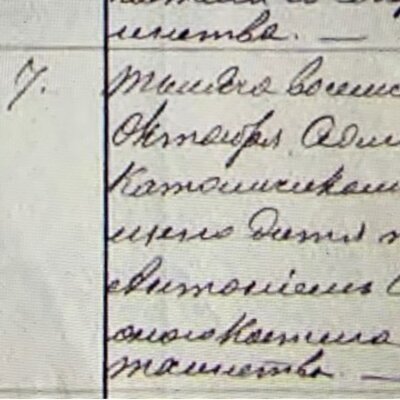 инства. —
7. тысяча восемьс
Октября Один
Католическом
щено дитя
Антоніемъ
оного Костела
таинства. —